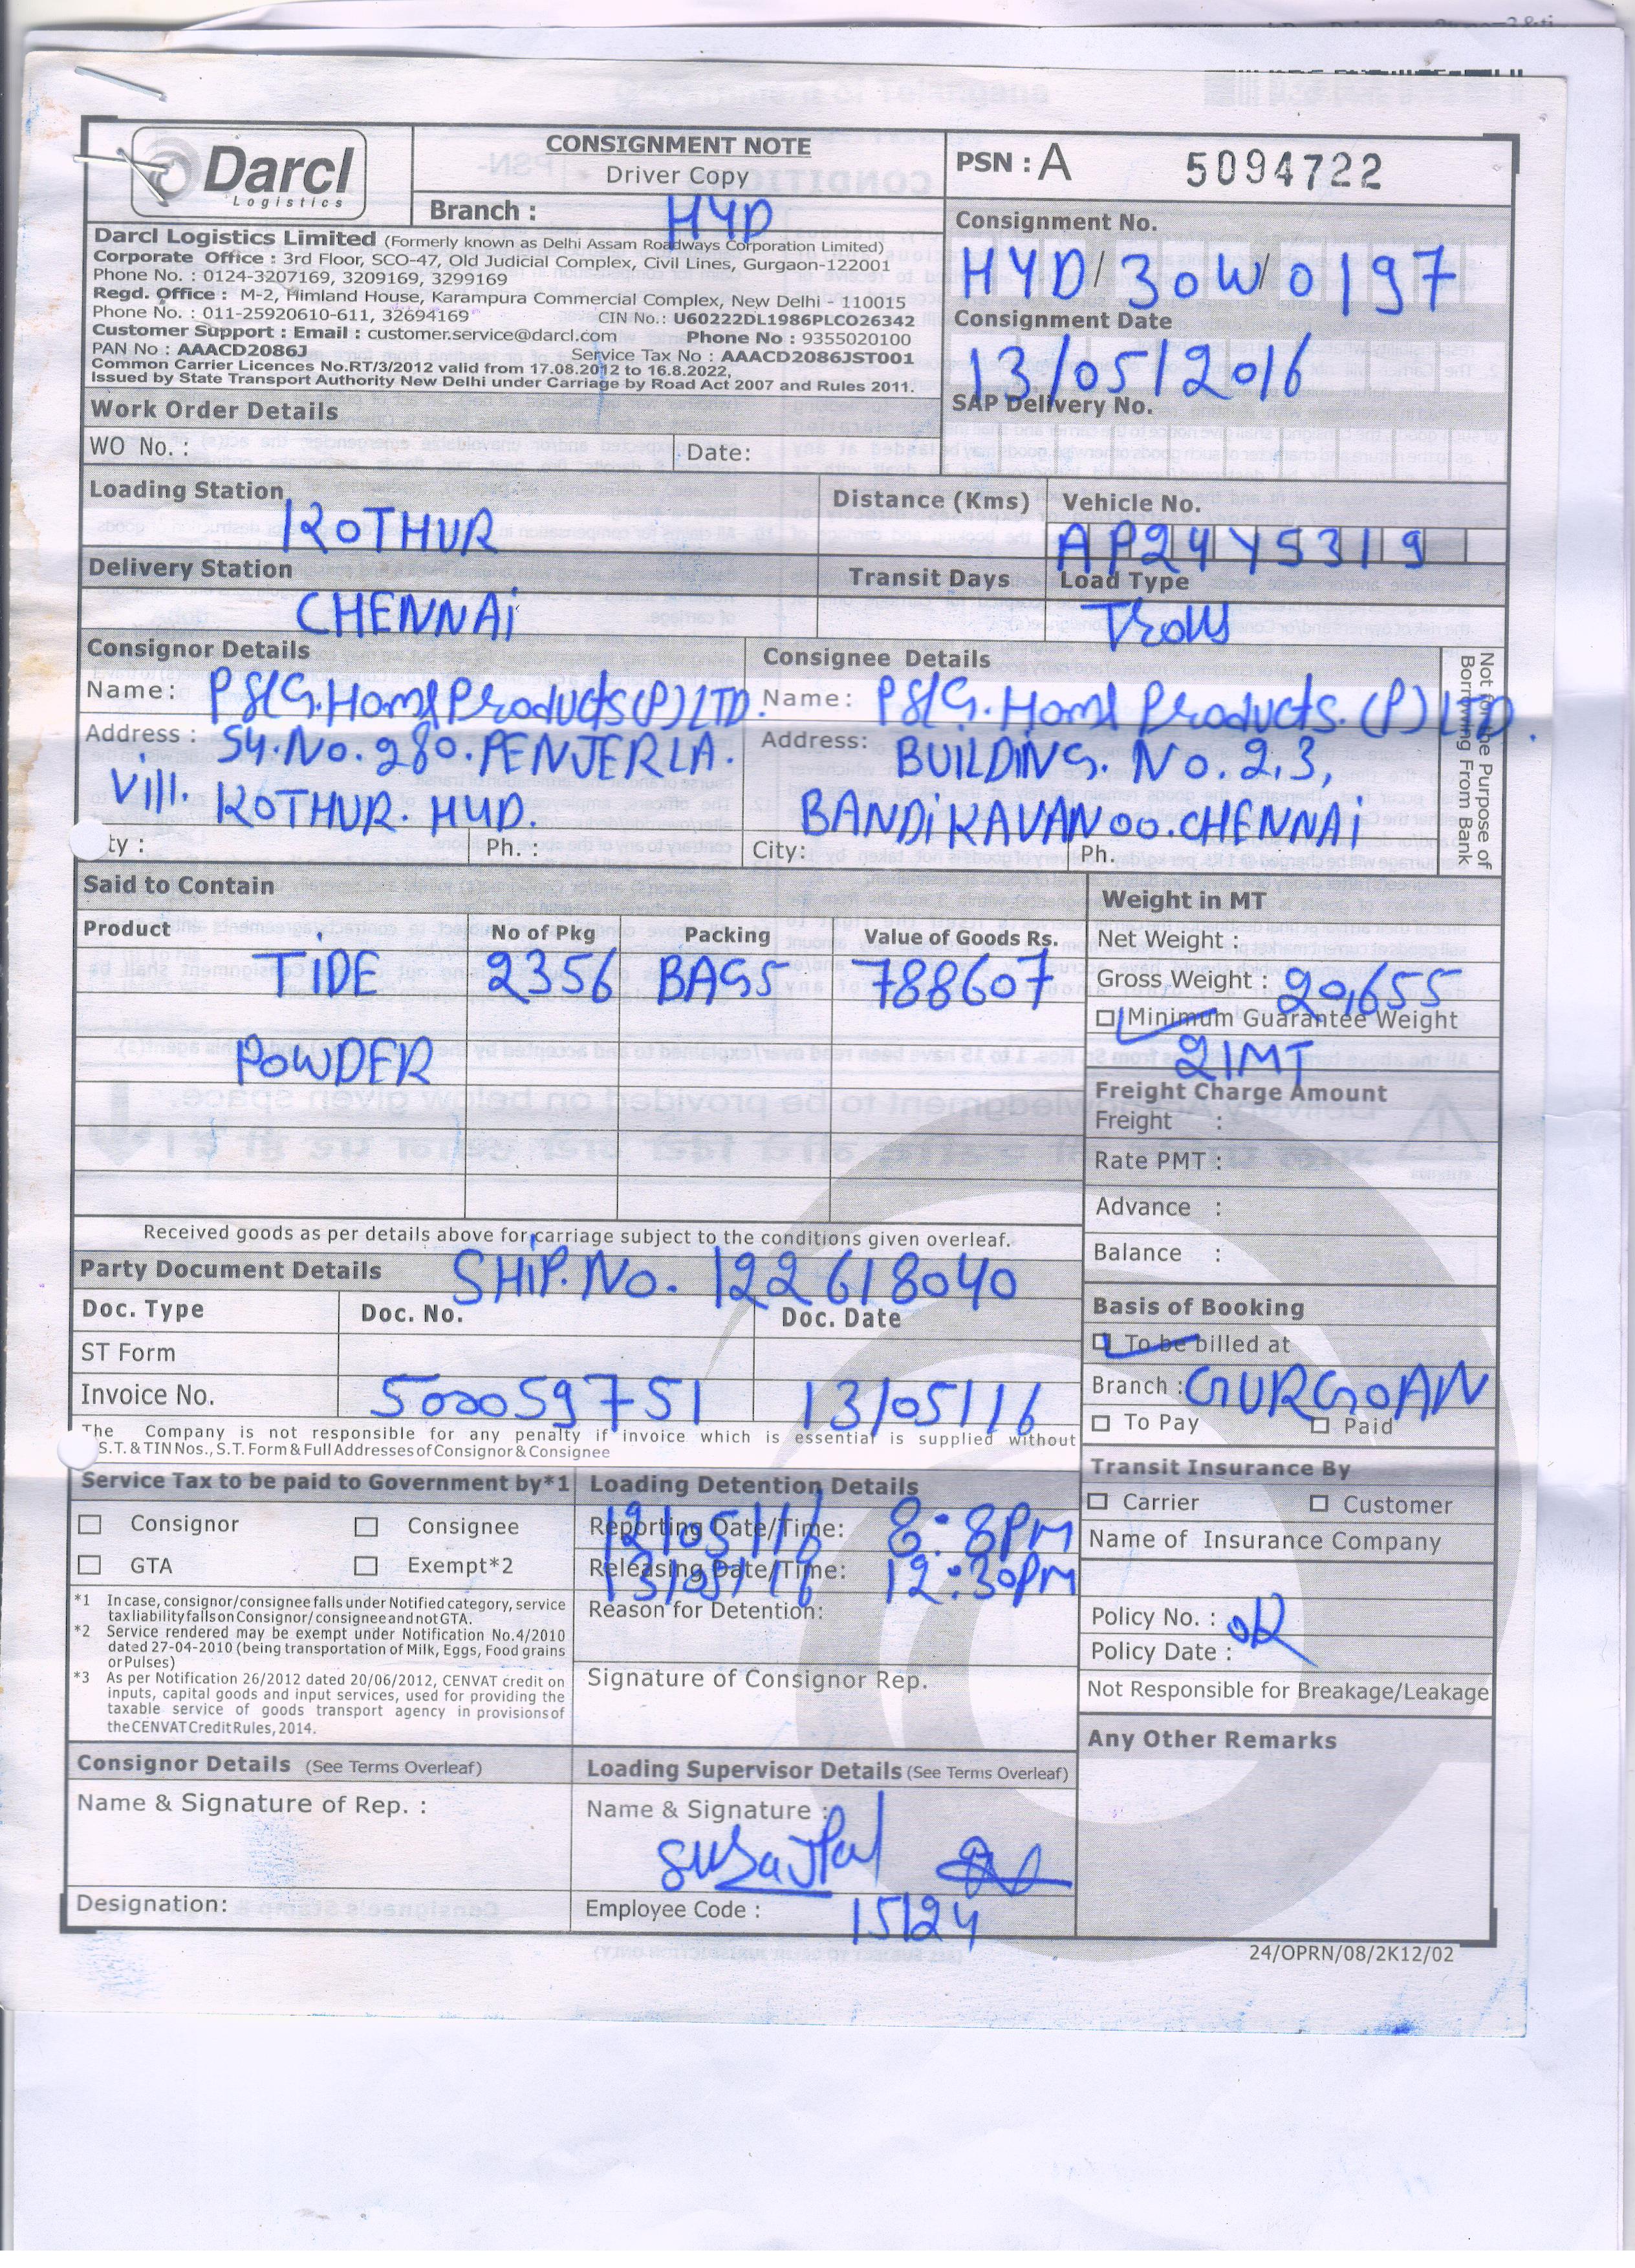 Darcl
Logistics
CONSIGNMENT NOTE
Driver Copy
Branch : HYD
PSN : A 5094722
Darcl Logistics Limited (Formerly known as Delhi Assam Roadways Corporation Limited)
Corporate Office : 3rd Floor, SCO-47, Old Judicial Complex, Civil Lines, Gurgaon-122001
Phone No. : 0124-3207169, 3209169, 3299169
Regd. Office : M-2, Himland House, Karampura Commercial Complex, New Delhi - 110015
Phone No. : 011-25920610-611, 32694169 CIN No.: U60222DL1986PLCO26342
Customer Support : Email : customer.service@darcl.com Phone No : 9355020100
PAN No : AAACD2086J Service Tax No : AAACD2086JST001
Common Carrier Licences No.RT/3/2012 valid from 17.08.2012 to 16.8.2022,
Issued by State Transport Authority New Delhi under Carriage by Road Act 2007 and Rules 2011.
Consignment No.
HYD/30W/0197
Consignment Date
13/05/2016
SAP Delivery No.
Work Order Details
WO No. : Date:
Loading Station Distance (Kms) Vehicle No.
KOTHUR AP24Y5319
Delivery Station Transit Days Load Type
CHENNAi
Consignor Details
Name: P&G.Home Products(P)LTD.
Address : SY.No.280.PENJERLA.
Vill. KOTHUR. HYD.
ty : Ph. :
Consignee Details
Name: P&G.Home Products.(P)LTD.
Address: BUILDiNG. No.2,3,
BANDiKAVANOO.CHENNAi
City: Ph.
Not for the Purpose of
Borrowing From Bank
Said to Contain
Product No of Pkg Packing Value of Goods Rs.
TiDE 2356 BAGS 788607
POWDER
Weight in MT
Net Weight :
Gross Weight : 20,655
Minimum Guarantee Weight
21MT
Freight Charge Amount
Freight :
Rate PMT :
Advance :
Balance :
Received goods as per details above for carriage subject to the conditions given overleaf.
Party Document Details SHiP.No. 122618040
Doc. Type Doc. No. Doc. Date
ST Form
Invoice No. 500059751 13/05/16
The Company is not responsible for any penalty if invoice which is essential is supplied without
S.T. & TIN Nos., S.T. Form & Full Addresses of Consignor & Consignee
Basis of Booking
To be billed at
Branch : GURGOAN
To Pay Paid
Transit Insurance By
Carrier Customer
Name of Insurance Company
Policy No. : OR
Policy Date :
Not Responsible for Breakage/Leakage
Any Other Remarks
Service Tax to be paid to Government by*1
Consignor Consignee
GTA Exempt*2
*1 In case, consignor/consignee falls under Notified category, service
tax liability falls on Consignor/consignee and not GTA.
*2 Service rendered may be exempt under Notification No.4/2010
dated 27-04-2010 (being transportation of Milk, Eggs, Food grains
or Pulses)
*3 As per Notification 26/2012 dated 20/06/2012, CENVAT credit on
inputs, capital goods and input services, used for providing the
taxable service of goods transport agency in provisions of
the CENVAT Credit Rules, 2014.
Loading Detention Details
Reporting Date/Time: 12/05/16 8:8PM
Releasing Date/Time: 13/05/16 12:30PM
Reason for Detention:
Signature of Consignor Rep.
Consignor Details (See Terms Overleaf)
Name & Signature of Rep. :
Designation:
Loading Supervisor Details (See Terms Overleaf)
Name & Signature :
Employee Code : 15124
24/OPRN/08/2K12/02